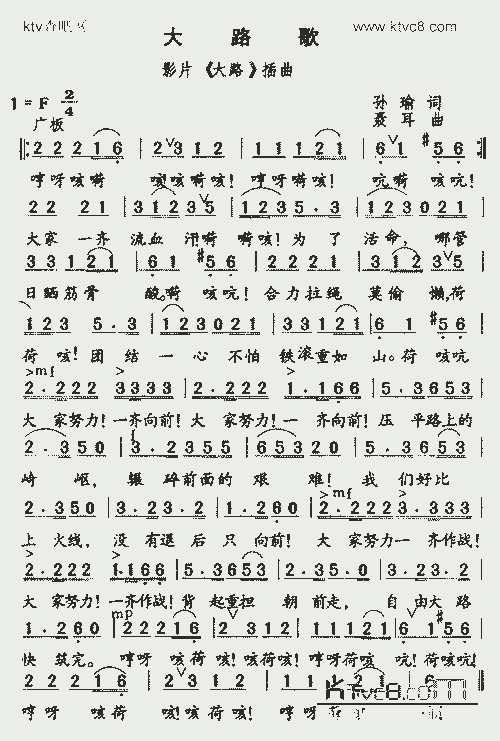 www.ktvc8.com
大 路 歌
影片《大路》插曲
1 = F 2/4
孙 瑜 词
广板
聂 耳 曲
2 2 2 1 6 | 2 3 1 2 | 1 1 1 2 1 | 6 1 #5 6 |
哼呀咳嗬 咳!咳嗬咳! 哼嗬咳! 吭嗬 咳吭!
2 2 2 1 | 3 1 2 3 5 | 1 2 3 5 . 3 | 1 2 3 0 2 1 |
大家 一齐 流血 汗嗬 嗬咳! 为 了 活命, 哪管
3 3 1 2 1 | 6 1 #5 6 | 2 2 2 1 | 3 1 2 3 5 |
日晒筋骨 酸,嗬 咳吭! 合力拉绳 莫偷 懒,荷
1 2 3 5 . 3 | 1 2 3 0 2 1 | 3 3 1 2 1 | 6 1 #5 6 |
荷 咳! 团 结 一 心 不怕 铁滚重如 山。荷 咳吭
>mf
2 . 2 2 2 3 3 3 3 | 2 . 2 2 2 1 . 1 6 6 | 5 . 3 6 5 3 |
大 家努力! 一齐向前! 大 家努力! 一 齐向前! 压 平路上的
2 . 3 5 0 | 3 . 2 3 5 5 | 6 5 3 2 0 | 5 . 3 6 5 3 |
崎 岖, 辗 碎前面的 艰 难! 我 们好比
2 . 3 5 0 | 3 . 2 3 . 2 | 1 . 2 6 0 | 2 . 2 2 2 3 . 3 3 3 |
上 火线, 没 有退 后 只 向前! 大 家努力 一 齐作战!
2 . 2 2 2 1 . 1 6 6 | 5 . 3 6 5 3 | 2 . 3 5 . 0 | 3 . 2 3 . 2 |
大 家努力! 一齐作战! 背 起重担 朝 前走, 自 由大 路
1 . 2 6 0 | 2 2 2 1 6 | 2 3 1 2 | 1 1 1 2 1 | 6 1 #5 6 |
快 筑完。 哼呀 咳荷 咳!咳荷咳! 哼呀荷咳 吭!荷咳吭!
2 2 2 1 6 | 2 3 1 2 |
哼 呀 咳荷 咳!咳荷 咳! 哼呀
KTvc8.com